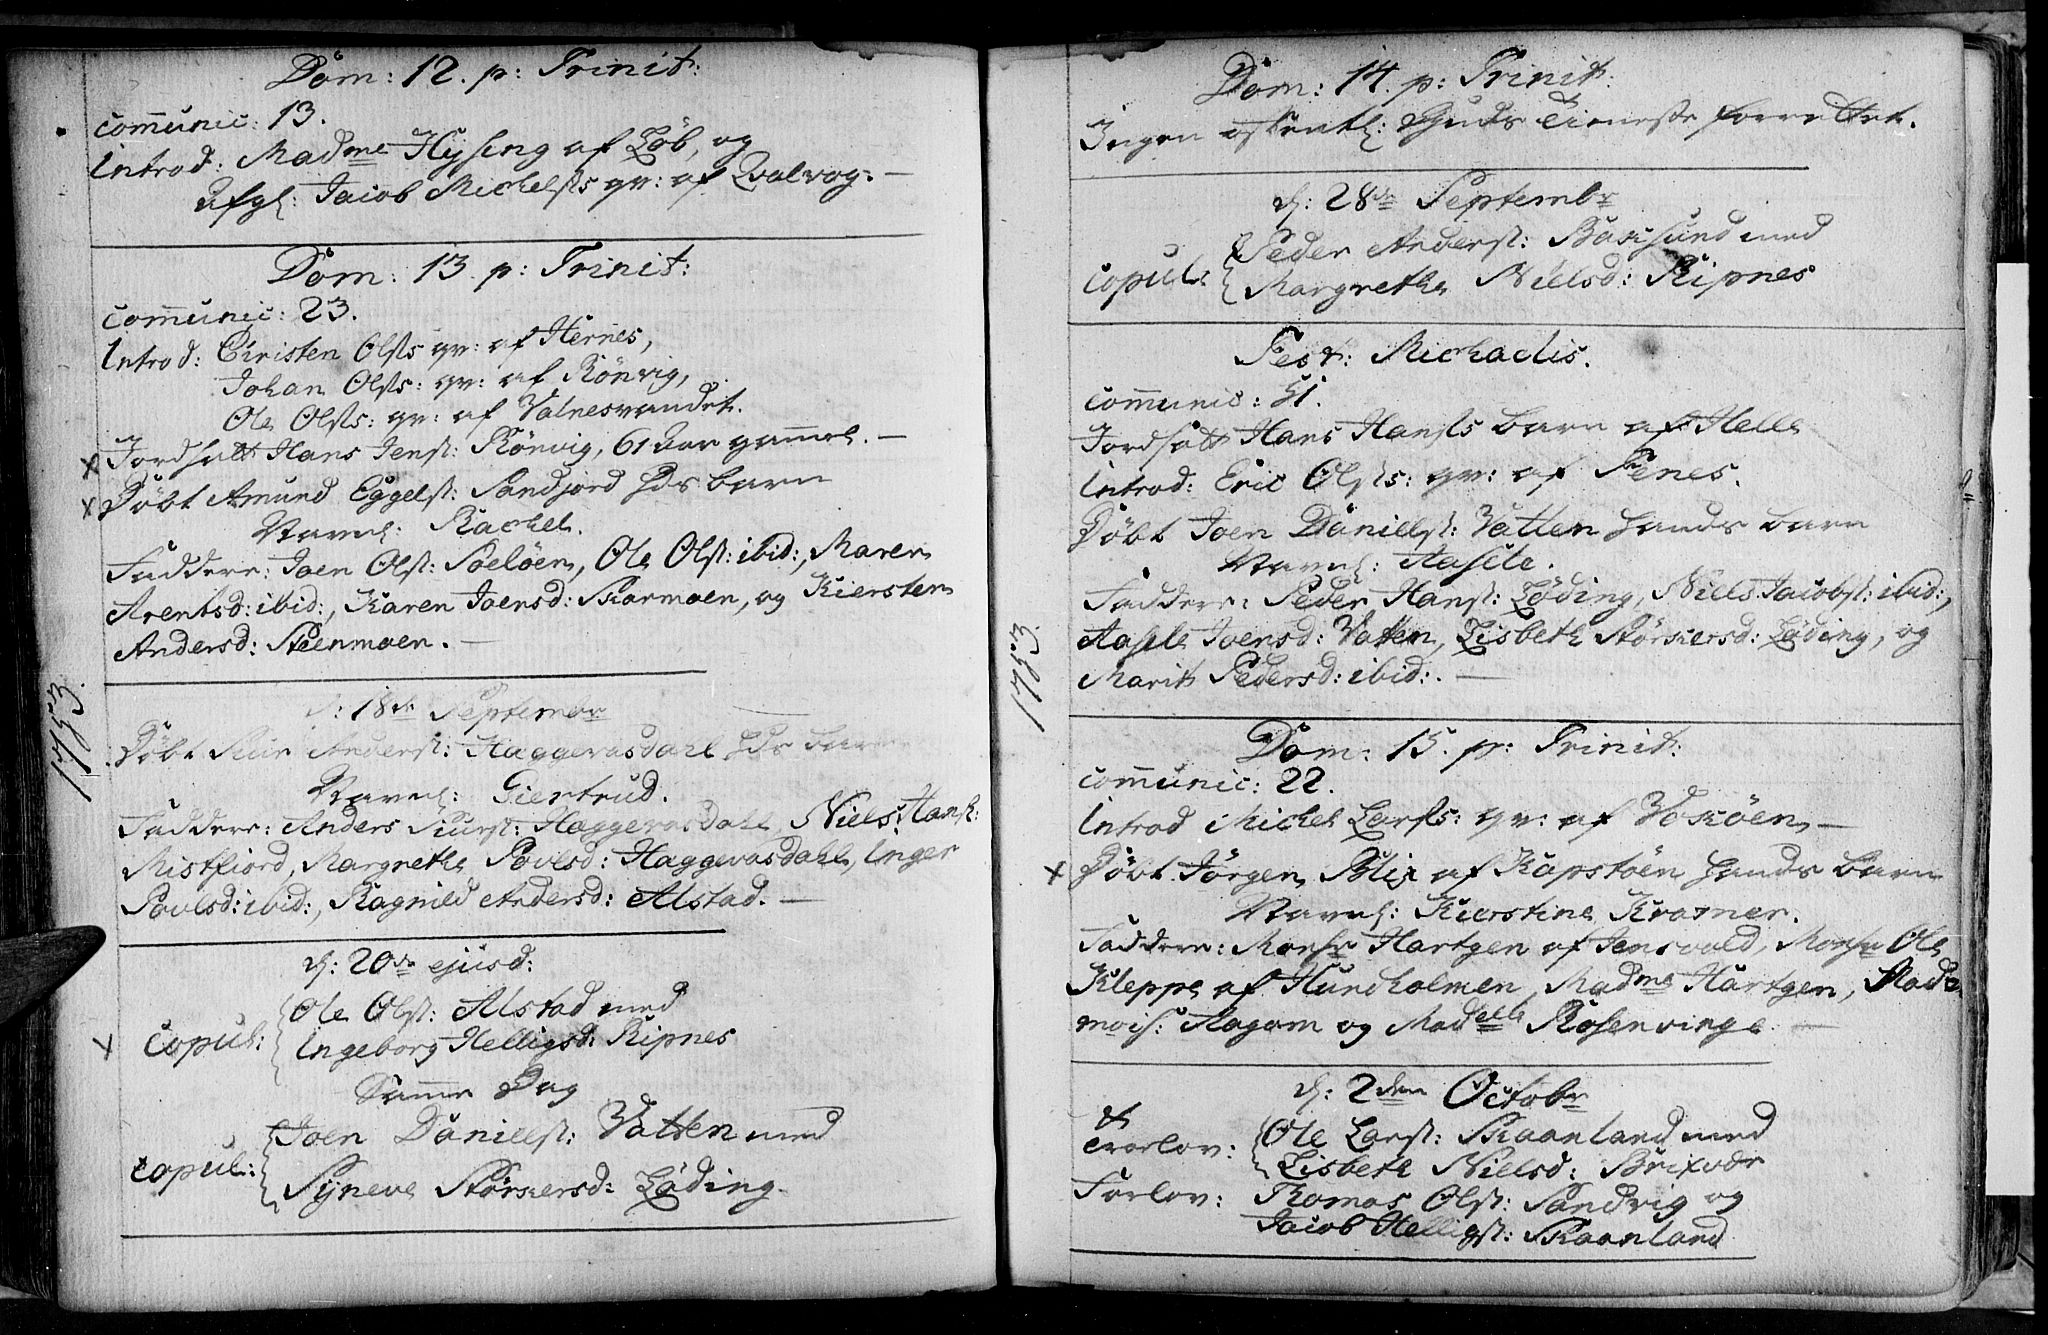 1753.
Dom: 12. p: Trinit:
communic: 13.
Introd: Madme Hysing af Løb, og
Afgl: Jacob Michelsøs qv: af Qvalvog. —
Dom: 13. p: Trinit:
communic: 23.
Introd: Christen Olsøs qv: af Hernes,
Johan Olsøs: qv: af Rönvig,
Ole Olsøs: qv: af Valnesvandet.
x Jordsatt Hans Jensø: Rönvig, 61 Aar gammel. —
x Döbt Amund Eggelsø: Sandjord Hds barn
Navnl: Rachel.
Faddere: Joen Olsø: Soelöen, Ole Olsø: ibid:, Maren
Arentsd: ibid:, Karen Joensd: Skarmoen, og Kiersten
Andersd: Steenmoen. —
d: 18de Septembr
Döbt Siur Andersø: Haggervasdahl Hds barn
Navnl: Giertrud.
Faddere: Anders Siursø: Haggervasdahl, Niels Hansø:
Mistfiord, Margrethe Povlsd: Haggervasdahl, Inger
Povlsd: ibid:, Ragnild Andersd: Alstad. —
d: 20de ejusd:
Ole Olsø: Alstad med
x copul: Ingeborg Helligsd: Ripnes
Samme Dag
Joen Daniellsø: Vatten med
copul: Synneve Størkersd: Løding.
1753.
Dom: 14. p: Trinit:
Ingen offentl: Guds Tieneste forrettet.
d: 28de Septembr
Peder Andersø: Baksund med
copul: Margrethe Nielsd: Ripnes
Fest: Michaelis.
communic: 51.
Jordsatt Hans Hansøs barn af Helle
Introd: Eric Olsøs: qv: af Fenes.
Döbt Joen Daniellsø: Vatten Hands barn
Navnl: Aasele.
Faddere: Peder Hansø: Løding, Niels Jacobsø: ibid:,
Aasele Joensd: Vatten, Lisbeth Størkersd: Løding, og
Marit Pedersd: ibid:. —
Dom: 15. p: Trinit:
communic: 22.
Introd Michel Larsøs: qv: af Voxöen —
x Döbt Jörgen Blix af Kapstöen Hands Barn
Navnl: Kierstine Kramer.
Faddere: Monsr Hartgen af Jensvold, Monsr Ole
Kleppe af Hundholmen, Madme Hartgen, Made
mois: Aagam og Madelle Rosenvinge —
d: 2den Octobr
Trorlov: Ole Larsø: Skaanland med
Lisbeth Nielsd: Brixvær
Forlov: Thomas Olsø: Sandvig og
Jacob Helligsø: Skaanland